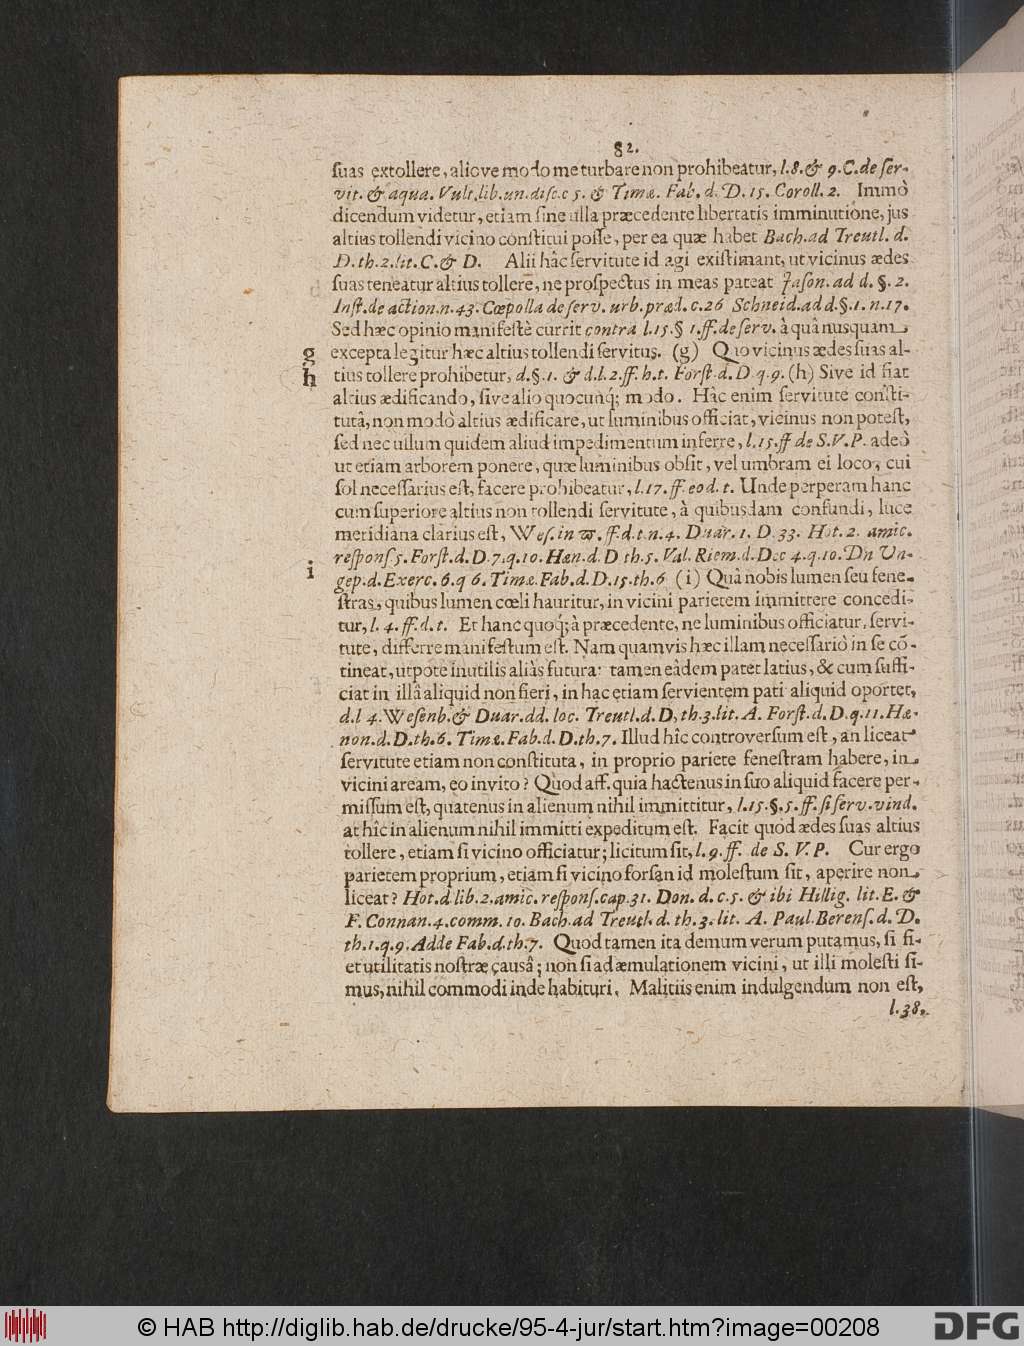 82.
suas extollere, aliove modo me turbare non prohibeatur, l. 8. & 9. C. de ser-
vit. & aqua. Vult. lib. un. disc. c 5. & Timæ. Fab. d. D. 15. Coroll. 2. Immò
dicendum videtur, etiam sine ulla præcedente libertatis imminutione, jus
altius tollendi vicino constitui posse, per ea quæ habet Bach. ad Treutl. d.
D. th. 2. lit. C. & D. Alii hâc servitute id agi existimant, ut vicinus ædes
suas teneatur altius tollere, ne prospectus in meas pateat Jason. ad d. §. 2.
Inst. de action. n. 43. Cœpolla de serv. urb. præd. c. 26 Schneid. ad d. §. 1. n. 17.
Sed hæc opinio manifestè currit contra l. 15. § 1. ff. de serv. à quâ nusquam
g excepta legitur hæc altius tollendi servitus. (g) Quo vicinus ædes suas al-
h tius tollere prohibetur, d. §. 1. & d. l. 2. ff. h. t. Forst. d. D. q. 9. (h) Sive id fiat
altius ædificando, sive alio quocunq; modo. Hâc enim servitute consti-
tutâ, non modò altius ædificare, ut luminibus officiat, vicinus non potest,
sed nec ullum quidem aliud impedimentum inferre, l. 15. ff de S. V. P. adeò
ut etiam arborem ponere, quæ luminibus obsit, vel umbram ei loco, cui
sol necessarius est, facere prohibeatur, l. 17. ff. eod. t. Unde perperam hanc
cum superiore altius non tollendi servitute, à quibusdam confundi, luce
meridiana clarius est, Wes. in ϖ. ff. d. t. n. 4. Duar. 1. D. 33. Hot. 2. amic.
respons 5. Forst. d. D. 7. q. 10. Hæn. d. D th. 5. Val. Riem. d. Dec 4. q. 10. Dn Un-
i gep. d. Exerc. 6. q 6. Timæ. Fab. d. D. 15. th. 6 (i) Quâ nobis lumen seu fene-
stras, quibus lumen cœli hauritur, in vicini parietem immittere concedi-
tur, l. 4. ff. d. t. Et hanc quoq; à præcedente, ne luminibus officiatur, servi-
tute, differre manifestum est. Nam quamvis hæc illam necessariò in se cõ-
tineat, utpote inutilis aliàs futura: tamen eâdem patet latius, & cum suffi-
ciat in illâ aliquid non fieri, in hac etiam servientem pati aliquid oportet,
d. l 4. Wesenb. & Duar. dd. loc. Treutl. d. D, th. 3. lit. A. Forst. d. D. q. 11. Hæ-
non. d. D. th. 6. Timæ. Fab. d. D. th. 7. Illud hîc controversum est, an liceat
servitute etiam non constituta, in proprio pariete fenestram habere, in
vicini aream, eo invito? Quod aff. quia hactenus in suo aliquid facere per-
missum est, quatenus in alienum nihil immittitur, l. 15. §. 5. ff. si serv. vind.
at hîc in alienum nihil immitti expeditum est. Facit quòd ædes suas altius
tollere, etiam si vicino officiatur; licitum sit, l. 9. ff. de S. V. P. Cur ergo
parietem proprium, etiam si vicino forsan id molestum sit, aperire non
liceat? Hot. d lib. 2. amic. respons. cap. 31. Don. d. c. 5. & ibi Hillig. lit. E. &
F. Connan. 4. comm. 10. Bach. ad Treutl. d. th. 3. lit. A. Paul Berens. d. D.
th. 1. q. 9. Adde Fab. d. th. 7. Quod tamen ita demum verum putamus, si fi-
et utilitatis nostræ causâ; non si ad æmulationem vicini, ut illi molesti si-
mus, nihil commodi inde habituri. Malitiis enim indulgendum non est,
l. 38.
© HAB http://diglib.hab.de/drucke/95-4-jur/start.htm?image=00208
DFG